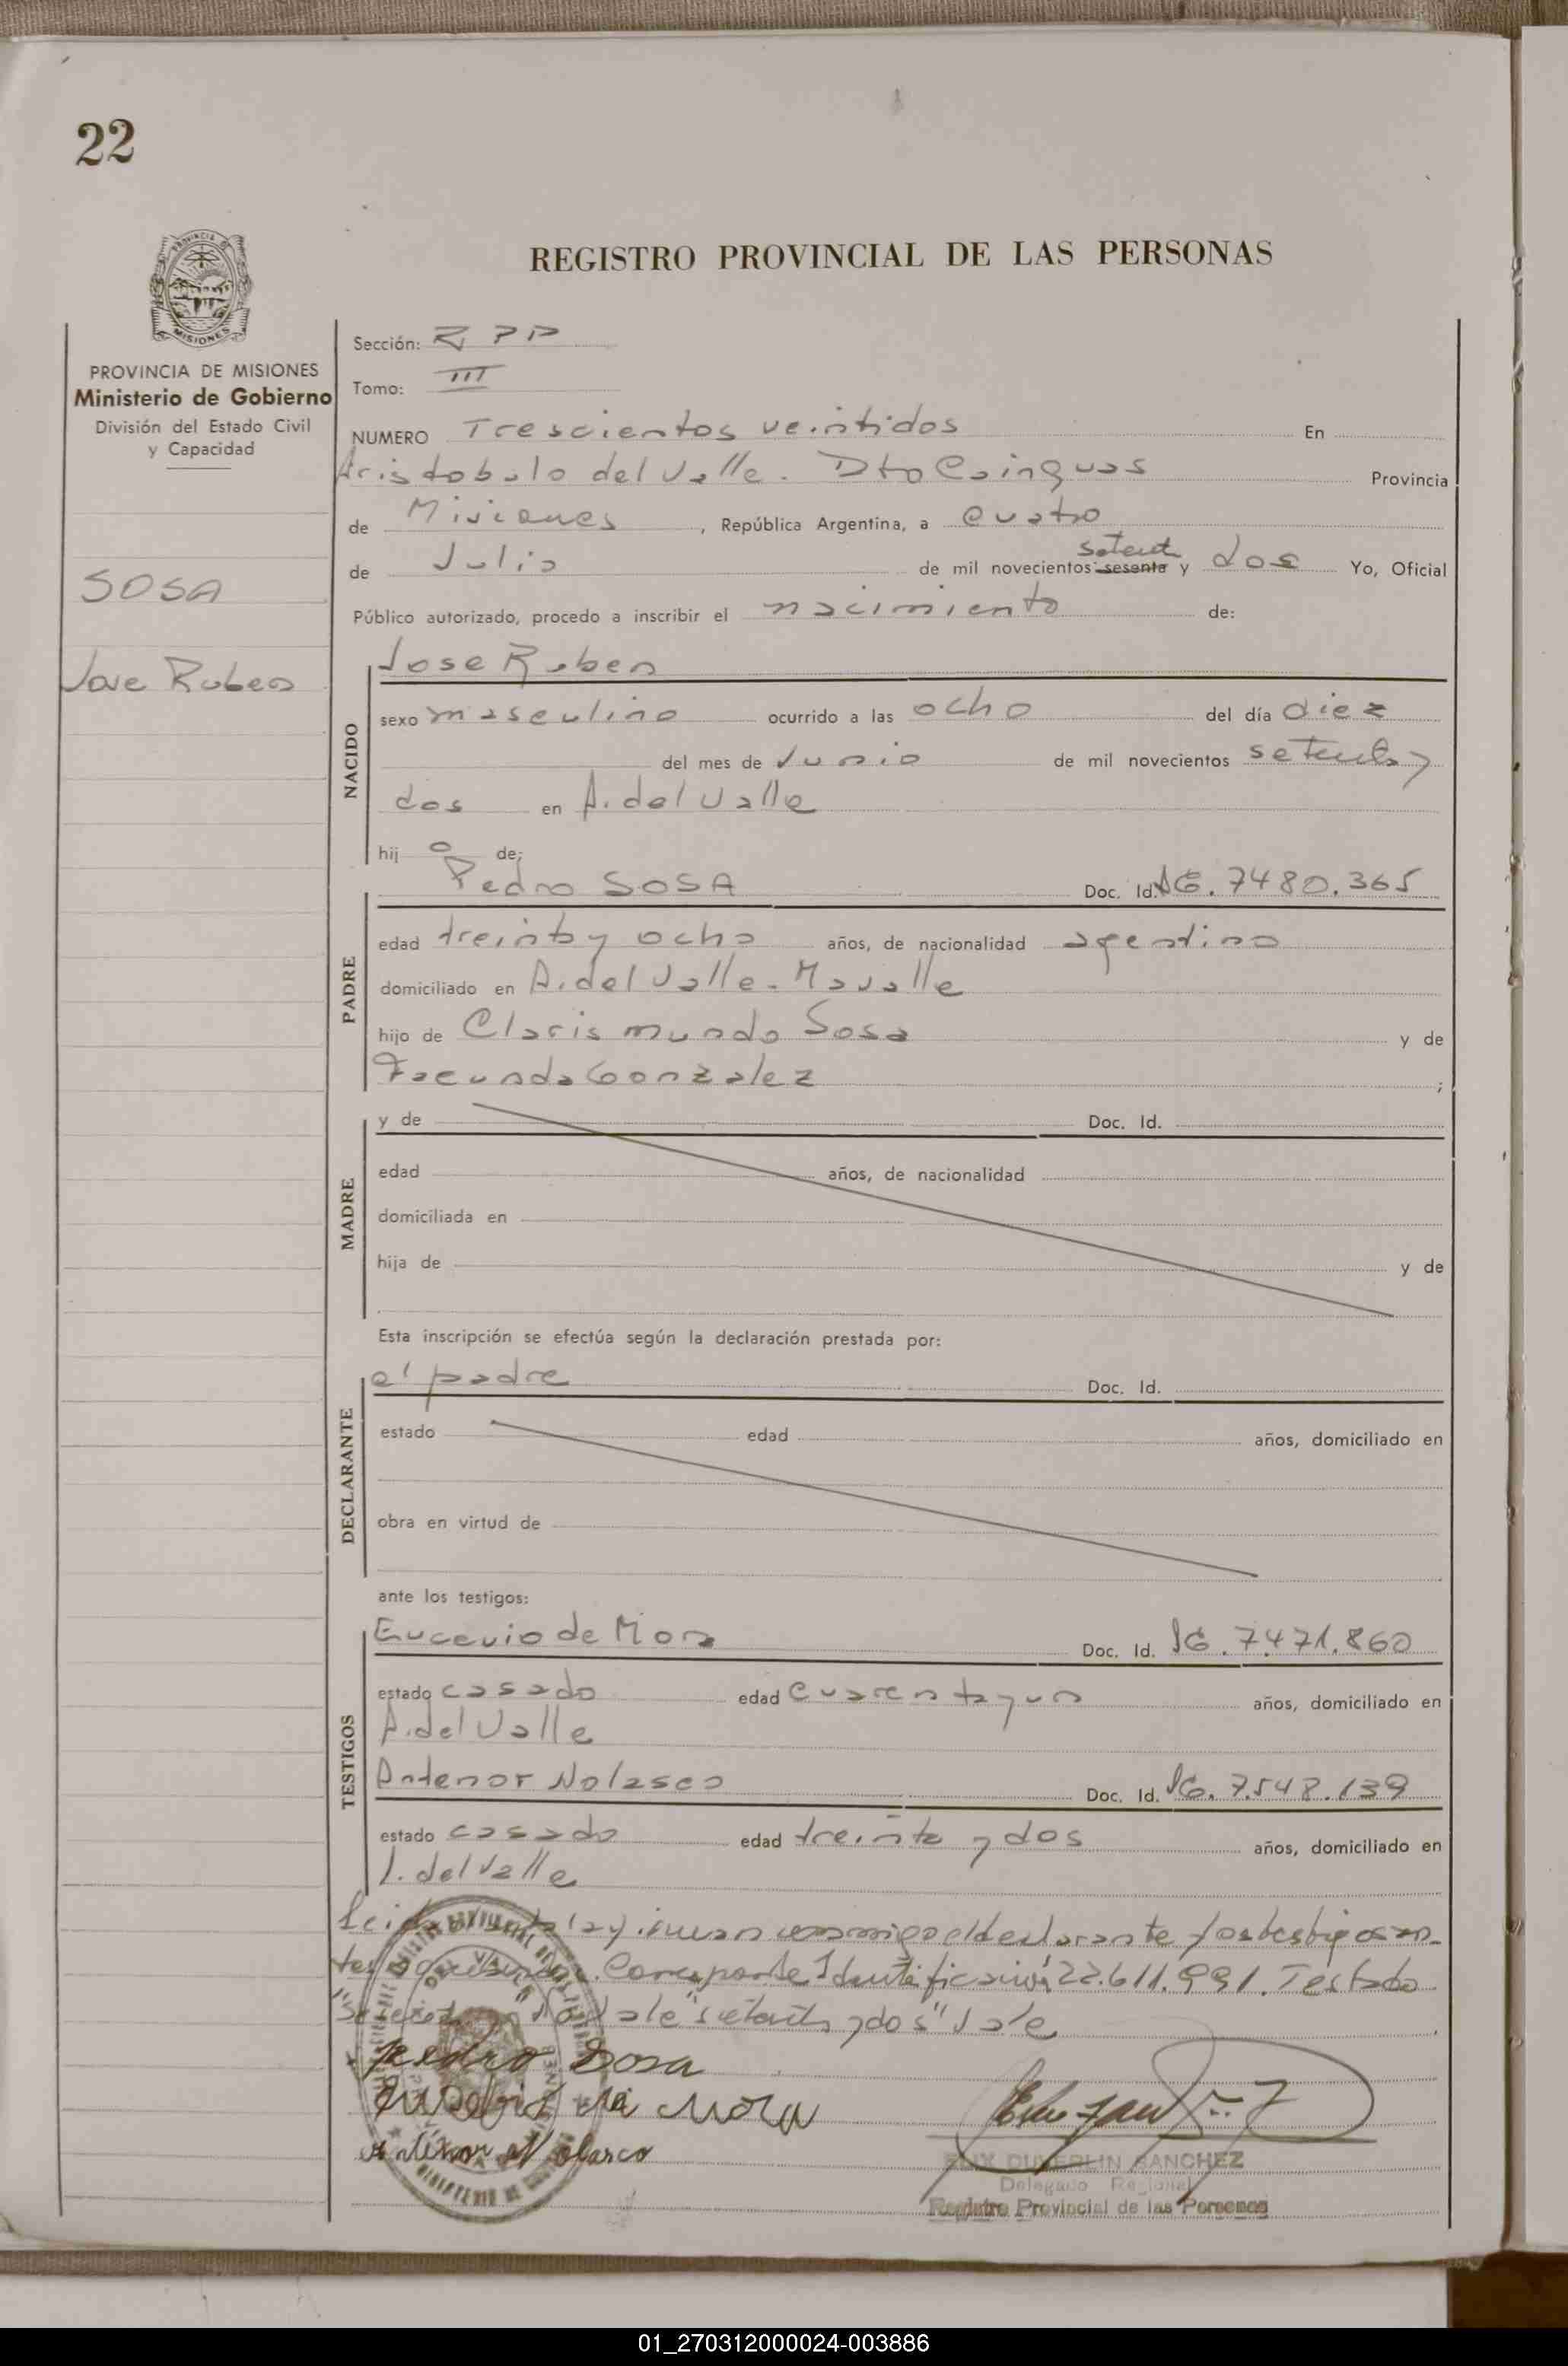 22
REGISTRO PROVINCIAL DE LAS PERSONAS
PROVINCIA DE MISIONES
Ministerio de Gobierno
División del Estado Civil
y Capacidad
SOSA
Jose Ruben
Sección: R P P
Tomo: III
NUMERO Trescientos veintidos En
Aristobulo del Valle. Dto Cainguas Provincia
de Misiones, República Argentina, a cuatro
de Julio de mil novecientos sesenta setenta y dos Yo, Oficial
Público autorizado, procedo a inscribir el nacimiento de:
NACIDO
Jose Ruben
sexo masculino ocurrido a las ocho del día diez
del mes de Junio de mil novecientos setenta y
dos en A. del Valle
hijo de:
PADRE
Pedro SOSA Doc. Id. 7480.365
edad treinta y ocho años, de nacionalidad argentino
domiciliado en A. del Valle.
hijo de Clarismundo Sosa y de
Facunda Gonzalez ;
MADRE
y de Doc. Id.
edad años, de nacionalidad
domiciliada en
hija de y de
Esta inscripción se efectúa según la declaración prestada por:
DECLARANTE
el padre Doc. Id.
estado edad años, domiciliado en
obra en virtud de
ante los testigos:
TESTIGOS
Eucevio de Mora Doc. Id. 7.471.860
estado casado edad cuarenta y un años, domiciliado en
A. del Valle
Antenor Nolasco Doc. Id. 7.548.139
estado casado edad treinta y dos años, domiciliado en
A. del Valle
conmigo el declarante los testigos
Identificación 22.611.991. Testado
"setenta y dos" Vale
Pedro Sosa
de Mora
Antenor Nolasco
SANCHEZ
Delegado Regional
Registro Provincial de las Personas
01_270312000024-003886